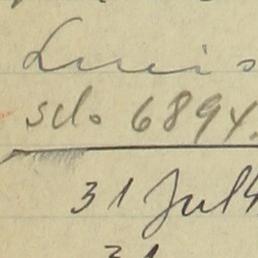 Luis
sdo 6894.
31 Jul
31